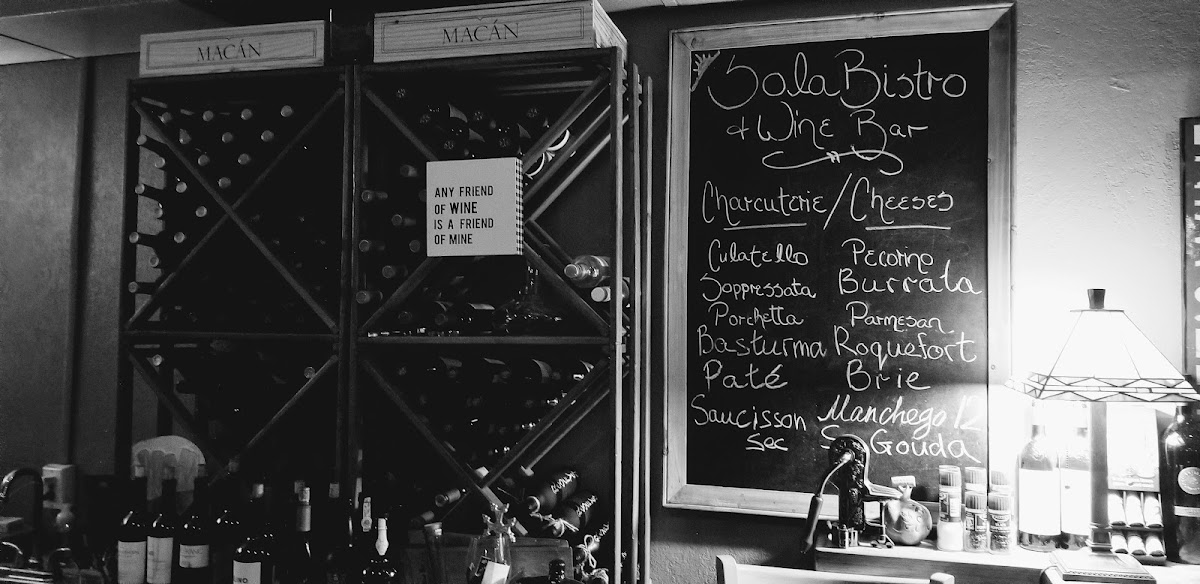 MACÁN
MACÁN
ANY FRIEND
OF WINE
IS A FRIEND
OF MINE
Sola Bistro
& Wine Bar
Charcuterie/Cheeses
Culatello Pecorino
Soppressata Burrata
Porchetta Parmesan
Basturma Roquefort
Paté Brie
Saucisson Manchego 12
Sec Gouda